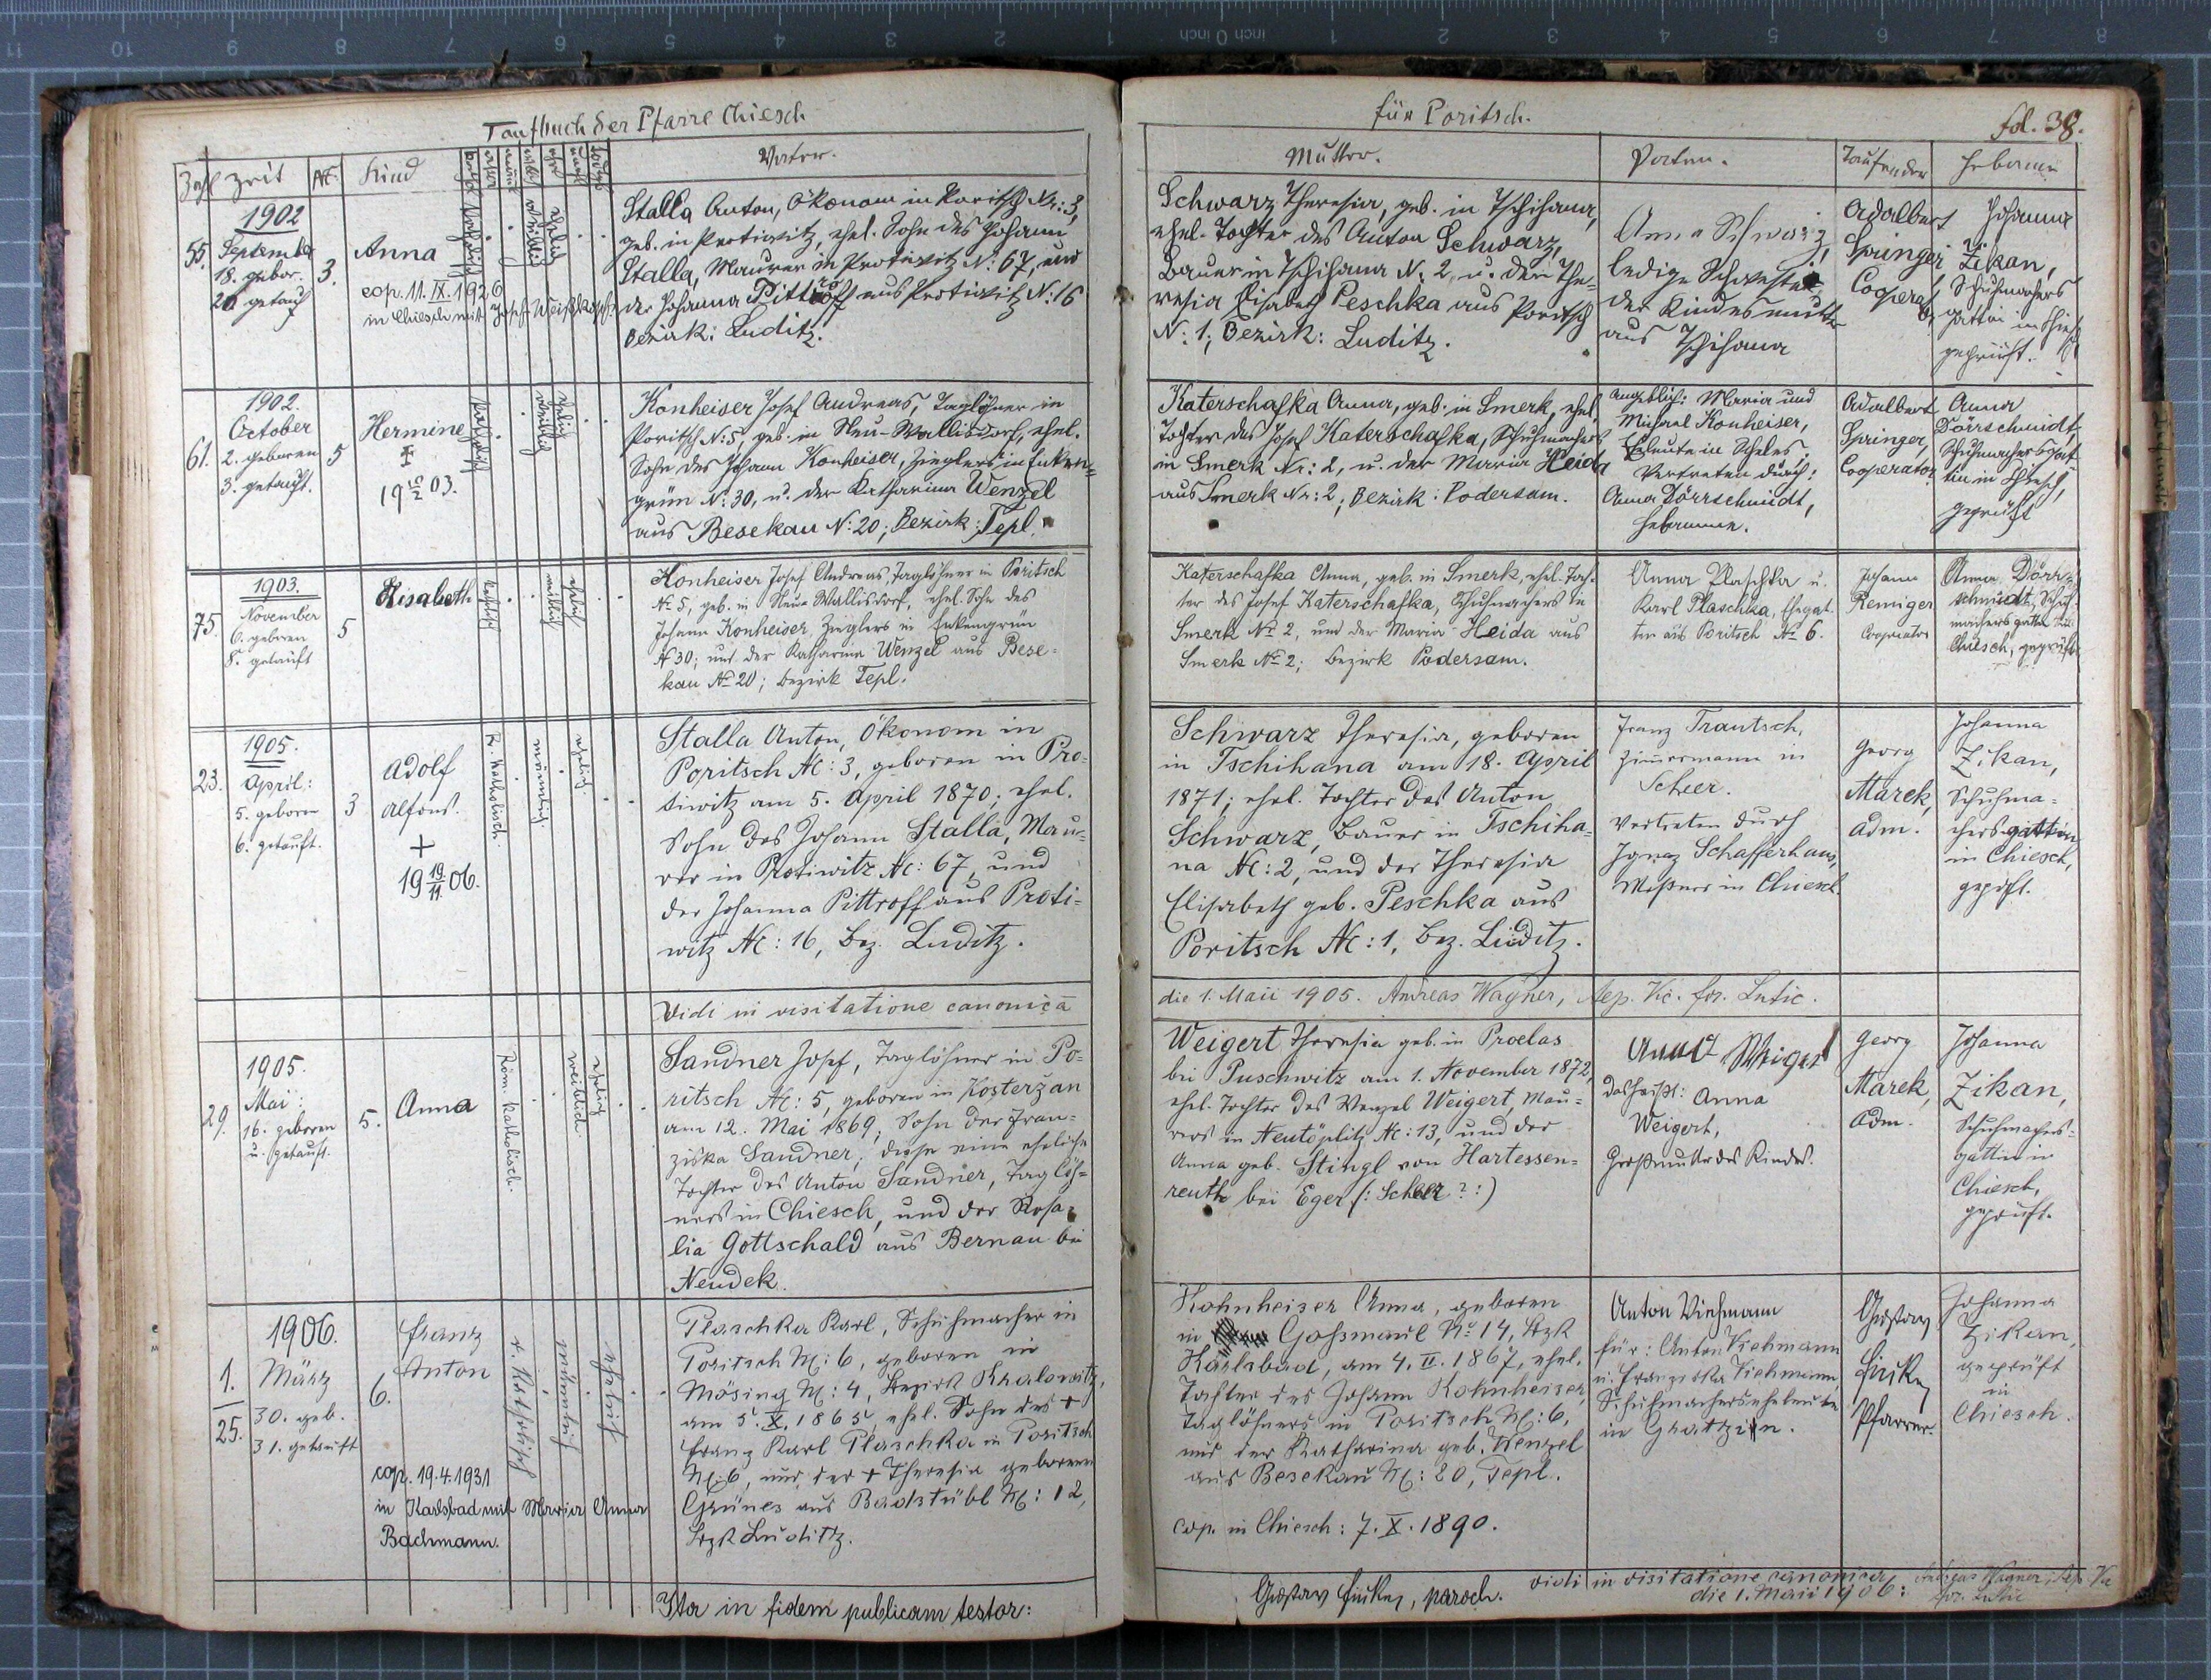 Taufbuch der Pfarre Chiesch
Zahl Zeit Nc. Kind
Vater.
1902
55. September
18. gebor.
20 getauft
3.
Anna
cop. 11. IX. 1926
in Chiesch mit Josef Weißkopf
Katholisch
weiblich
ehelich
Stalla Anton, Ökonom in Poritsch Nr: 3,
geb. in Protiwitz, ehel. Sohn des Johann
Stalla, Maurer in Protiwitz N: 67, und
der Johanna Pittroff aus Protiwitz N: 16
Bezirk: Luditz.
1902.
October
61. 2. geboren
3. getauft.
5
Hermine
†
19 10/2 03.
Katholisch
weiblich
ehelich
Konheiser Josef Andreas, Taglöhner in
Poritsch N: 5, geb. in Neu-Wallisdorf, ehel.
Sohn des Johann Konheiser, Zieglers in Enken=
grün N: 30, u. der Katharina Wenzel
aus Besekau N: 20; Bezirk: Tepl.
1903.
75. November
6. geboren
8. getauft
5
Elisabeth
kathol.
weiblich
ehelich
Konheiser Josef Andreas, Taglöhner in Poritsch
No 5, geb. in Neu-Wallisdorf, ehel. Sohn des
Johann Konheiser, Zieglers in Enkengrün
No 30; und der Katharina Wenzel aus Bese=
kau No 20; Bezirk Tepl.
1905.
23. April:
5. geboren
6. getauft.
3
Adolf
Alfons.
+
19 19/11. 06.
R. Katholisch.
männlich.
ehelich.
Stalla Anton, Ökonom in
Poritsch Nc: 3, geboren in Pro=
tiwitz am 5. April 1870; ehel.
Sohn des Johann Stalla, Mau=
rer in Protiwitz Nc: 67, und
der Johanna Pittroff aus Proti=
witz Nc: 16, Bez. Luditz.
Vidi in visitatione canonica
1905.
29. Mai:
16. geboren
u. getauft.
5.
Anna
Röm. katholisch.
weiblich
ehelich
Sandner Josef, Taglöhner in Po=
ritsch Nc: 5, geboren in Kosterzan
am 12. Mai 1869; Sohn der Fran=
ziska Sandner; diese eine eheliche
Tochter des Anton Sandner, Taglöh=
ners in Chiesch, und der Rosa=
lia Gottschald aus Bernau bei
Neudek.
1906.
1. März
25. 30. geb.
31. getauft
6.
Franz
Anton
cop. 19.4.1931
in Karlsbad mit Maria Anna
Bachmann.
r. Katholisch
männlich
ehelich
Plaschka Karl, Schuhmacher in
Poritsch Nc: 6, geboren in
Mösing Nc: 4, Bezirk Kralowitz,
am 5. X. 1865, ehel. Sohn des +
Franz Karl Plaschka in Poritsch
Nc: 6, und der + Theresia geborenen
Grünes aus Badstübl Nc: 12,
Bzk Luditz.
Ita in fidem publicam testor:
für Poritsch.
fol. 38.
Mutter.
Paten.
Taufender
Hebamme
Schwarz Theresia, geb. in Tschihana,
ehel. Tochter des Anton Schwarz,
Bauer in Tschihana N. 2, u. der The=
resia Elisabeth Peschka aus Poritsch
N: 1; Bezirk: Luditz.
Anna Schwarz,
ledige Schwester
der Kindesmutter
aus Tschihana
Adalbert
Springer
Cooperat.
Johanna
Zikan,
Schuhmachers
gattin in Chiesch
geprüft.
Katerschafka Anna, geb. in Smerk, ehel.
Tochter des Josef Katerschafka, Schuhmachers
in Smerk Nr: 2, u. der Maria Heida
aus Smerk Nr: 2; Bezirk: Podersam.
Angeblich: Maria und
Michael Konheiser,
Eheleute in Scheles;
Vertreten durch:
Anna Dörrschmidt,
Hebamme.
Adalbert
Springer,
Cooperator
Anna
Dörrschmidt,
Schuhmachersgat=
tin in Chiesch,
geprüft
Katerschafka Anna, geb. in Smerk, ehel. Toch=
ter des Josef Katerschafka, Schuhmachers in
Smerk No 2, und der Maria Heida aus
Smerk No 2; Bezirk Podersam.
Anna Plaschka u.
Karl Plaschka, Ehegat=
ten aus Poritsch No 6.
Johann
Remiger
Cooperator
Anna Dörr=
schmidt, Schuh=
machersgattin in
Chiesch, geprüft
Schwarz Theresia, geboren
in Tschihana am 18. April
1871; ehel. Tochter des Anton
Schwarz, Bauer in Tschiha=
na Nc: 2, und der Theresia
Elisabeth geb. Peschka aus
Poritsch Nc: 1, Bez. Luditz.
Franz Trautsch,
Zimmermann in
Scheer.
Vertreten durch
Ignaz Schafferhans,
Meßner in Chiesch.
Georg
Marek,
Adm.
Johanna
Zikan,
Schuhma=
chersgattin
in Chiesch,
geprft.
die 1. Maii 1905. Andreas Wagner, Aep. Vic. for. Lutic.
Weigert Theresia geb. in Proelas
bei Puschwitz am 1. November 1872,
ehel. Tochter des Wenzel Weigert, Mau=
rers in Neutöplitz Nc: 13, und der
Anna geb. Stingl von Hartessen=
reuth bei Eger (: Scheer ? :)
Anna Weigert
das heißt: Anna
Weigert,
Großmutter des Kindes.
Georg
Marek,
Adm.
Johanna
Zikan,
Schuhmachers=
gattin in
Chiesch,
geprüft.
Kohnheiser Anna, geboren
in Goßmaul No 14, Bzk
Karlsbad, am 4. II. 1867, ehel.
Tochter des Johann Kohnheiser,
Taglöhners in Poritsch Nc: 6,
und der Katharina geb. Wenzel
aus Besekau Nc: 20, Tepl.
cop. in Chiesch: 7. X. 1890.
Anton Viehmann
für: Anton Viehmann
u. Franziska Viehmann,
Schuhmacherseheleute
in Grattzin.
Gustav
Pfarrer.
Johanna
Zikan,
geprüft
in
Chiesch.
Gustav
, paroch.
vidi in visitatione canonica
die 1. Maii 1906:
Andreas Wagner, Aep. Vic.
for. Lutic